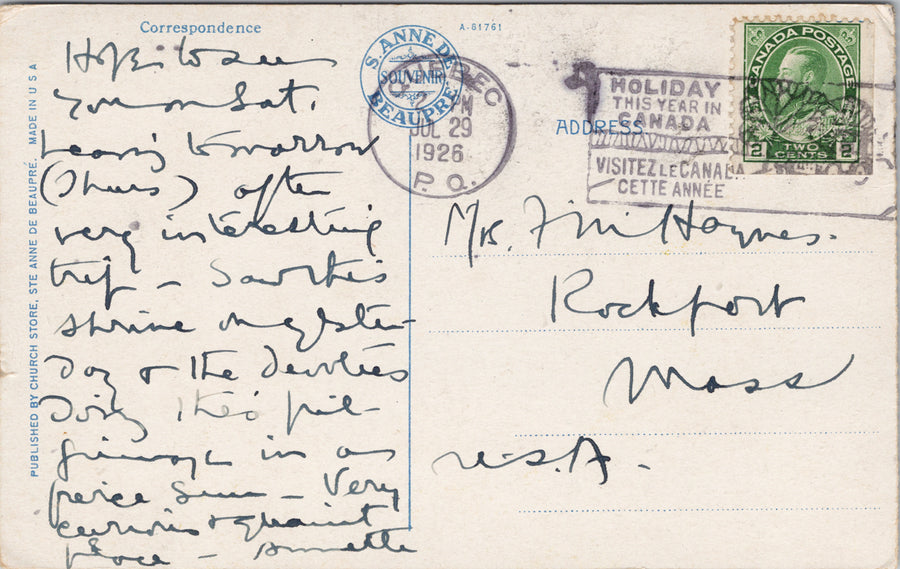 Correspondence
A-81761
S. ANNE DE
SOUVENIR
BEAUPRÉ
QUEBEC
PM
JUL 29
1926
P. Q.
HOLIDAY
THIS YEAR IN
CANADA
VISITEZ LE CANADA
CETTE ANNÉE
CANADA POSTAGE
2 TWO CENTS 2
ADDRESS
PUBLISHED BY CHURCH STORE, STE ANNE DE BEAUPRE. MADE IN U S A
Hope to see
you on Sat.
Leaving tomorrow
(Thurs) after
very interesting
trip – Saw this
shrine on yester-
day & the devotees
doing their pil-
grimage in a
fierce sun – Very
curious & quaint
place – Annette
Mrs. Haynes.
Rockport
Mass
U.S.A.